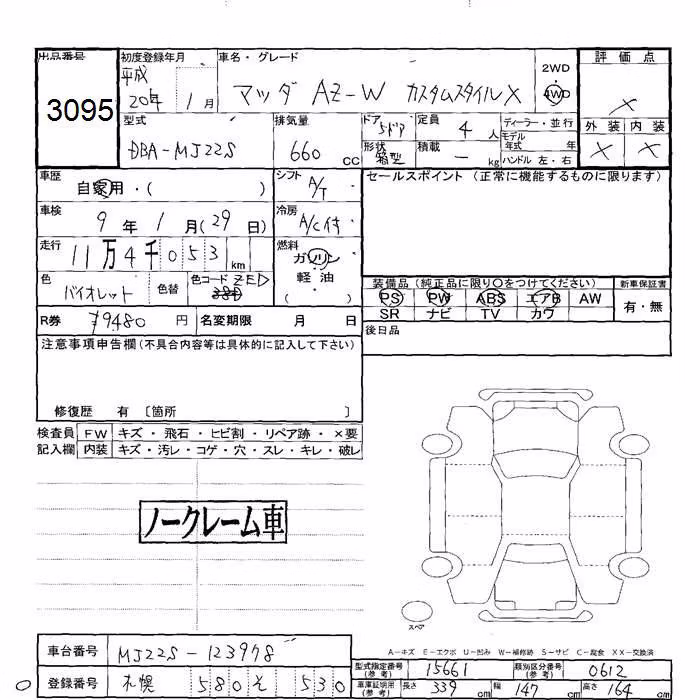 出品番号 初度登録年月 車名・グレード 評価点
3095 平成20年 1月 マツダ AZ-W カスタムスタイルX 2WD 4WD ×
型式 排気量 ドア 定員 ディーラー・並行 外装 内装
DBA-MJ22S 660 cc 5ドア 4人 モデル年式 年 × ×
形状 箱型 積載 ー kg ハンドル 左・右
車歴 自家用・( ) シフト A/T セールスポイント (正常に機能するものに限ります)
車検 9年 1月 (29日) 冷房 A/C付
走行 11万4千053km 燃料 ガソリン・軽油 ( )
色 バイオレット 色替 色コード ZED
装備品 (純正品に限り〇をつけてください) 新車保証書
PS PW ABS エアB AW 有・無
SR ナビ TV カワ
R券 79480円 名変期限 月 日 後日品
注意事項申告欄(不具合内容等は具体的に記入して下さい)
修復歴 有 〔箇所 〕
検査員 FW キズ・飛石・ヒビ割・リペア跡・×要
記入欄 内装 キズ・汚レ・コゲ・穴・スレ・キレ・破レ
ノークレーム車
スペア
A-キズ E-エクボ U-凹み W-補修跡 S-サビ C-腐食 XX-交換済
車台番号 MJ22S-123978
型式指定番号(参考) 15661 類別区分番号(参考) 0612
登録番号 札幌 580 そ 530
車庫証明用(参考) 長さ 339cm 幅 147cm 高さ 164cm